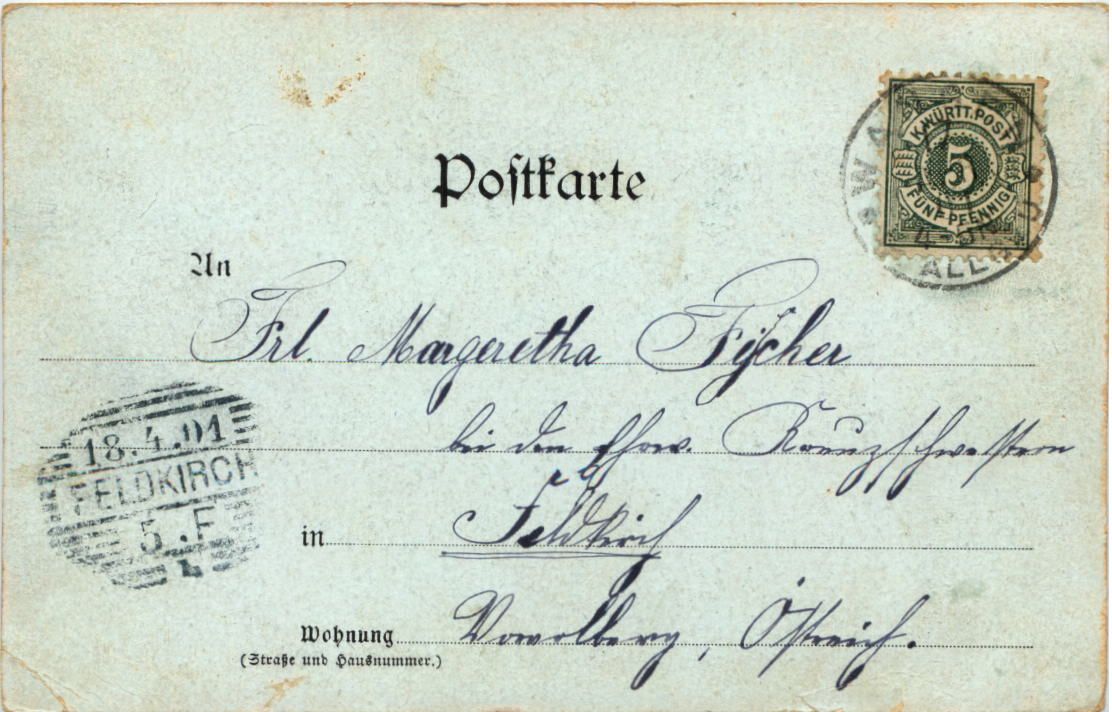 Postkarte
K. WÜRTT. POST
5
FÜNF PFENNIG
An
Frl. Margeretha Fischer
bei den Ehrw. Kreuzschwestern
18.4.01
FELDKIRCH
5.F
in Feldkirch
Wohnung Vorarlberg, Östreich.
(Straße und Hausnummer.)